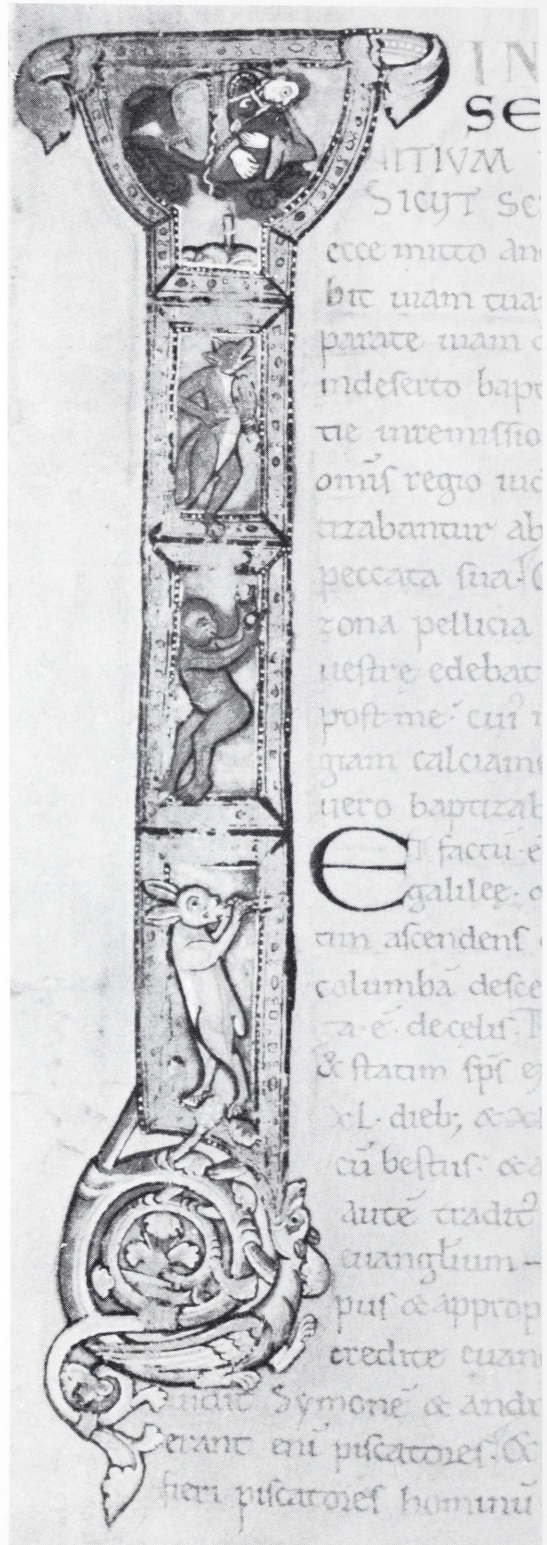 IN
SE
INITIVM
SICUT SC
ecce mitto an
bit uiam tua
parate uiam d
indeserto bapt
tie inremissio
omīs regio iud
tizabantur ab
peccata sua. C
zona pellicia
uestre edebat
post me. cui'
giam calciam
uero baptizab
ET factū ē
galilee. o
tim ascendens
columbā desce
ta ē. decelis. T
& statim sps̄ ex
xl. dieb; & x
cū bestiis. &
autē tradit'
euangliūm
pus & approp
credite euan
uidit Symonē & Andr
erant eni piscatores. &
fieri piscatores hominū